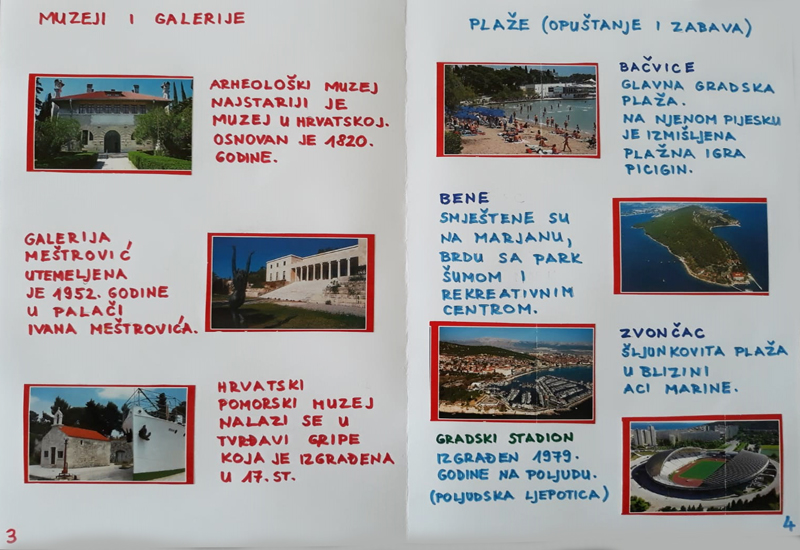 MUZEJI I GALERIJE
ARHEOLOŠKI MUZEJ
NAJSTARIJI JE
MUZEJ U HRVATSKOJ.
OSNOVAN JE 1820.
GODINE.
GALERIJA
MEŠTROVIĆ
UTEMELJENA
JE 1952. GODINE
U PALAČI
IVANA MEŠTROVIĆA.
HRVATSKI
POMORSKI MUZEJ
NALAZI SE U
TVRĐAVI GRIPE
KOJA JE IZGRAĐENA
U 17. ST.
3
PLAŽE (OPUŠTANJE I ZABAVA)
BAČVICE
GLAVNA GRADSKA
PLAŽA.
NA NJENOM PIJESKU
JE IZMIŠLJENA
PLAŽNA IGRA
PICIGIN.
BENE
SMJEŠTENE SU
NA MARJANU,
BRDU SA PARK
ŠUMOM I
REKREATIVNIM
CENTROM.
ZVONČAC
ŠLJUNKOVITA PLAŽA
U BLIZINI
ACI MARINE.
GRADSKI STADION
IZGRAĐEN 1979.
GODINE NA POLJUDU.
(POLJUDSKA LJEPOTICA)
4